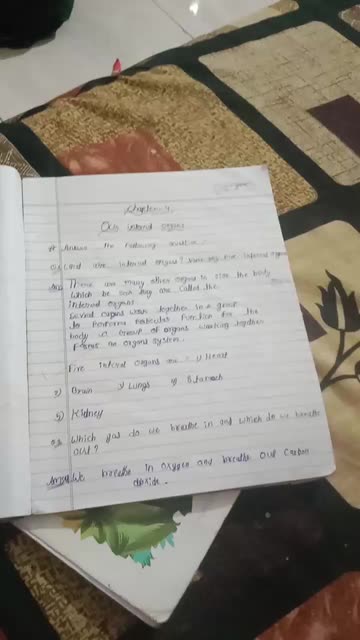 Chapter-4
Our internal organs
# Answer the following question.
Q.1 are internal organs? Name any five internal organs
Ans There are many other organs in side the body
which be see they are called the
internal organs.
Several organs work together in a group
to Perform Particular function for the
body a Group of organs working together
Forms an organs system.
Five internal organs are = 1) Heart
2) Brain 3) Lungs 4) Stomach
5) Kidney
Q.2 Which gas do we breathe in and which do we breathe
out?
Ans We breathe in oxygen and breathe out carbon